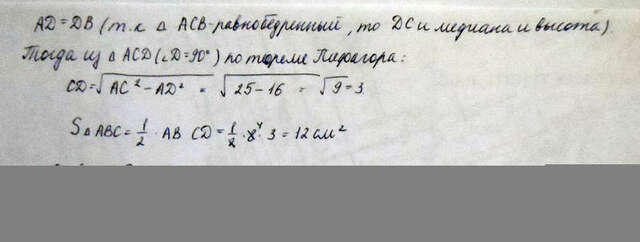 AD = DB (т.к △ ACB-равнобедренный, то DC и медиана и высота).
Тогда из △ ACD (∠D=90°) по теореме Пифагора:
CD = √AC² - AD² = √25-16 = √9 = 3
S△ABC = 1/2 · AB CD = 1/2 · 8 4 · 3 = 12 см²